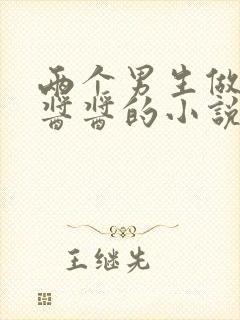 两个男生做
酱酱的小说
王继先